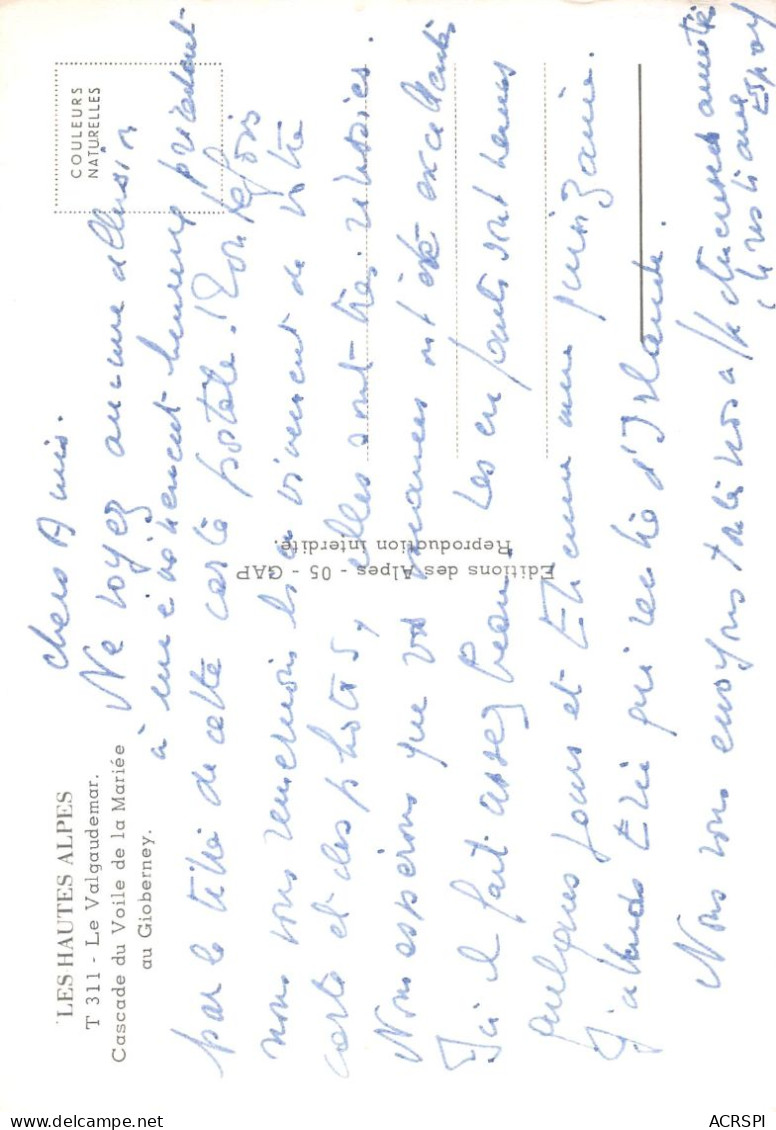 LES HAUTES ALPES
T 311 - Le Valgaudemar.
Cascade du Voile de la Mariée
au Gioberney.
COULEURS
NATURELLES
Editions des Alpes - 05 - GAP
Reproduction interdite.
chers Amis.
Ne voyez aucune allusion
à un évènement heureux
par le titre de cette carte postale! Toutefois
nous vous remercions de votre
carte et des photos, elles sont très réussies.
Nous espérons que vos vacances ont été excellentes
Ici il fait assez beau. Les enfants sont venus
quelques jours et Etienne une quinzaine.
J'attends Elie qui rentre d'Irlande.
Nous vous envoyons tous nos affectueuses amitiés
Christiane
ACRSPI